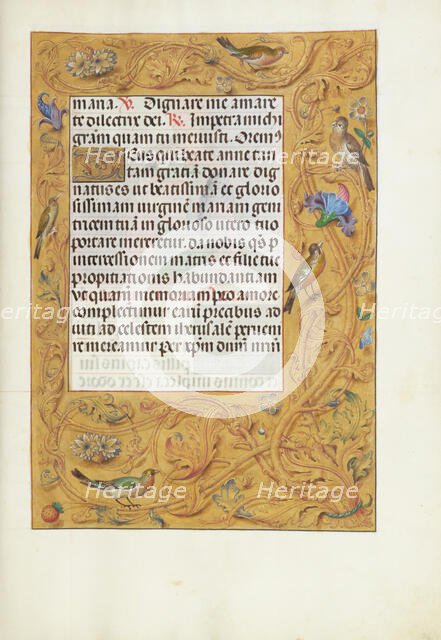 maria. V. Dignare me amare
te dilecte dei. R. Impetra michi
gram quam tu meruisti. Orem9
Deus qui beate anne tan
tam gratiam donare dig
natus es ut beatissimam et glorio
sissimam virginem mariam gem
tricem tuam in glorioso utero tuo
portare mereretur. da nobis qs p
intercessionem matris et filie tue
propitiationis habundantiam
ut quarum memoriam pro amore
complectimur earum precibus ad
iuti ad celestem iherusalem perueni
re mereamur per xpm dnm nrm
Heritage
Heritage
Heritage
Heritage
Heritage
Heritage
Heritage